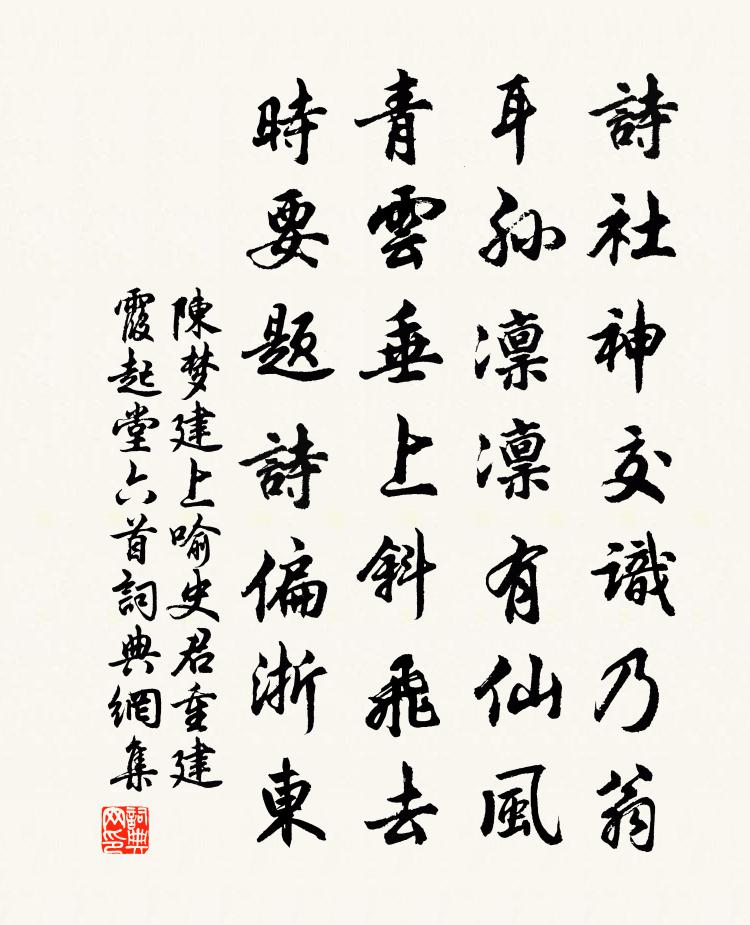 詩社神交識乃翁
耳孙凛凛有仙風
青雲垂上斜飛去
時要题詩偏浙東
陳梦建上喻史君重建
霞起堂六首詞典網集
詞典
网印